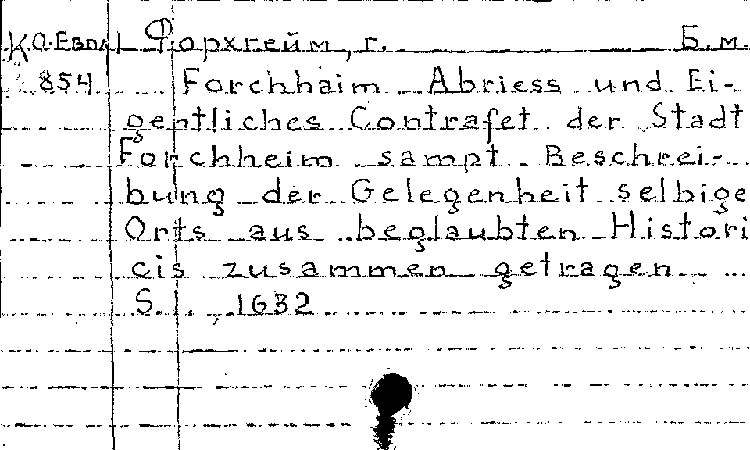 К.О.Европ Форхгейм, г. Б.м.
854 Forchhaim Abriess und Ei-
gentliches Contrafet der Stadt
Forchheim sampt Beschrei-
bung der Gelegenheit selbige
Orts aus beglaubten Histori
cis zusammen getragen
S.l., 1632